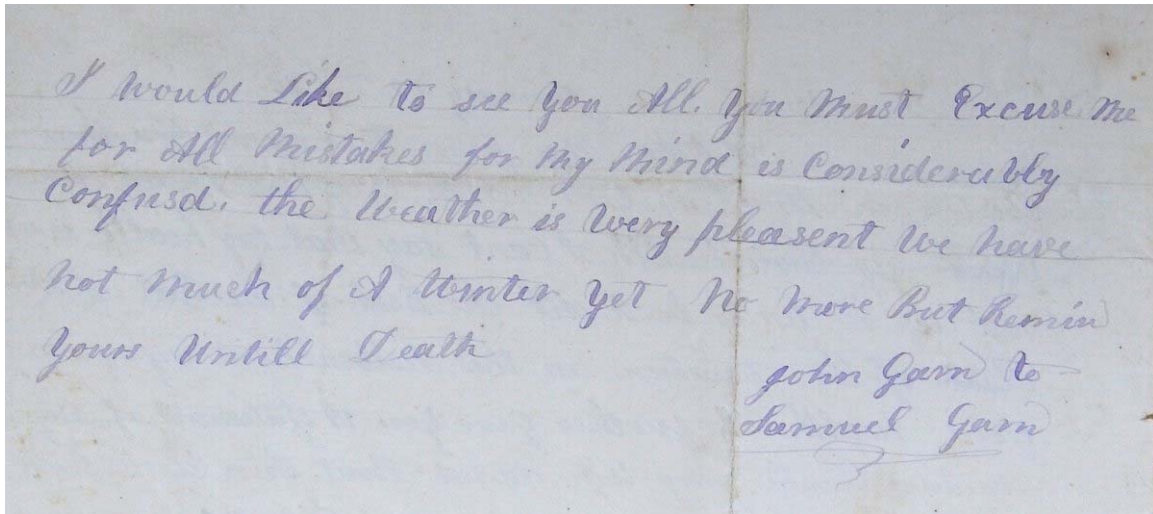 I Would Like to see you All. you Must Excuse Me
for All Mistakes for My Mind is Considerabby
Confusd. the Weather is Very pleasent We have
Not Much of A Winter yet No More But Remin
yours Untill Death
john Garn to
Samuel Garn